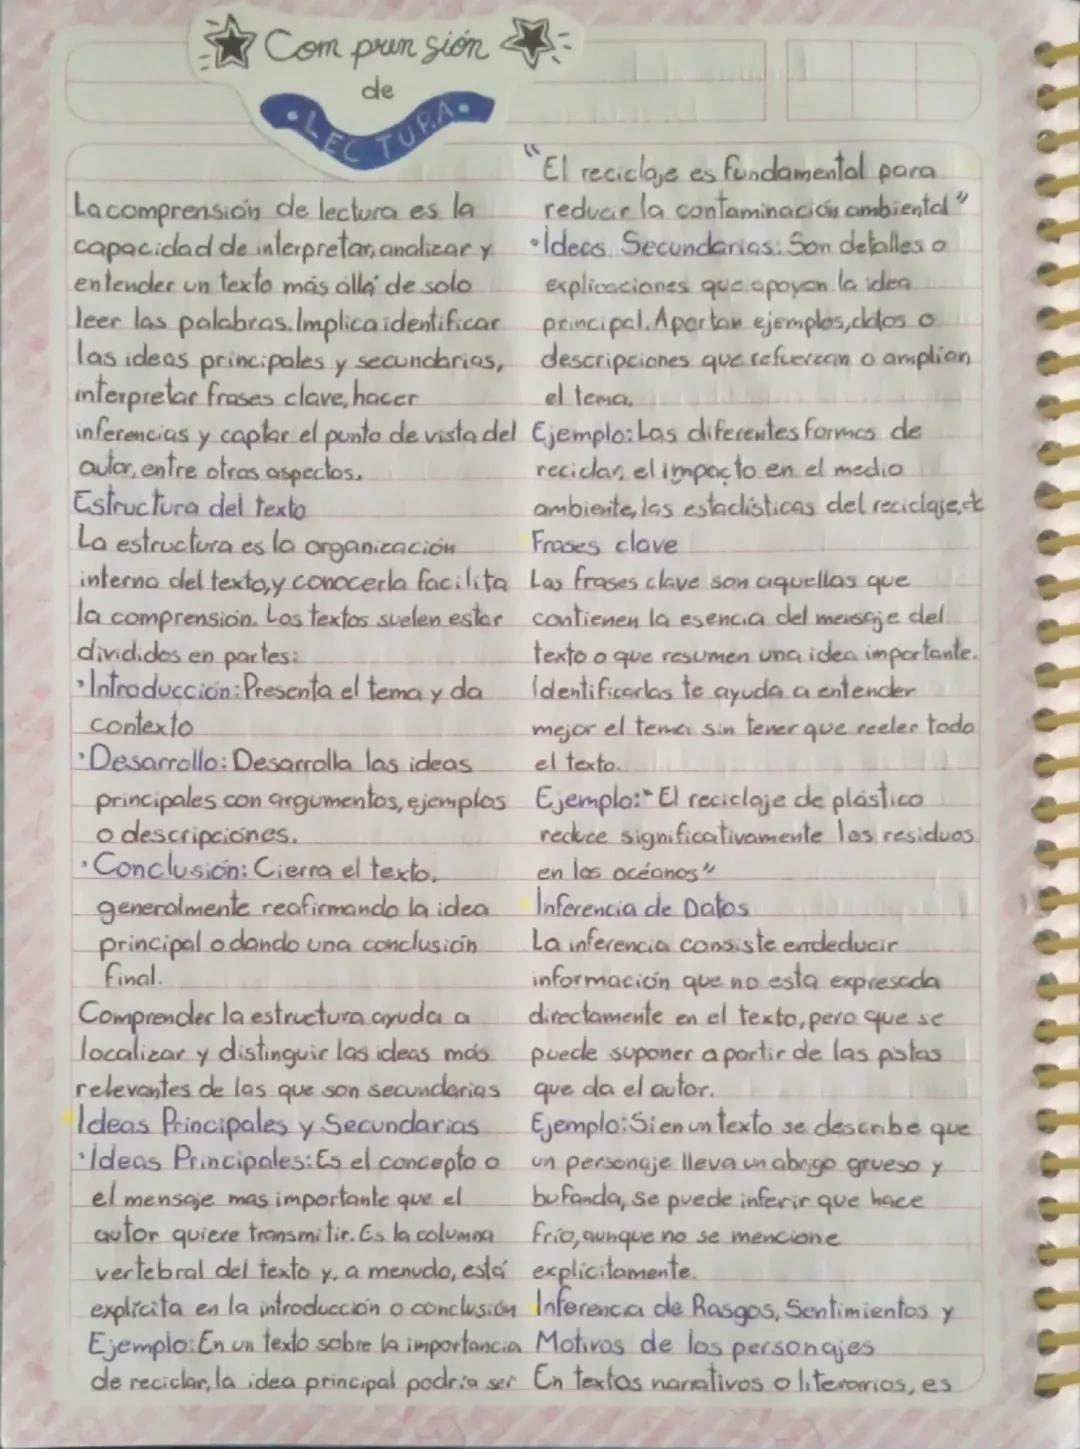 Com pren sión
de
LECTURA
La comprensión de lectura es la
capacidad de interpretar, analizar y
entender un texto más allá de solo
leer las palabras. Implica identificar
las ideas principales y secundarias,
interpretar frases clave, hacer
inferencias y captar el punto de vista del
autor, entre otros aspectos.
Estructura del texto
La estructura es la organización
interna del texto, y conocerla facilita
la comprensión. Los textos suelen estar
divididos en partes:
• Introducción: Presenta el tema y da
contexto
• Desarrollo: Desarrolla las ideas
principales con argumentos, ejemplos
o descripciones.
• Conclusión: Cierra el texto,
generalmente reafirmando la idea
principal o dando una conclusión
final.
Comprender la estructura ayuda a
localizar y distinguir las ideas más
relevantes de las que son secundarias
Ideas Principales y Secundarias
• Ideas Principales: Es el concepto o
el mensaje mas importante que el
autor quiere transmitir. Es la columna
vertebral del texto y, a menudo, está
explícita en la introducción o conclusión
Ejemplo: En un texto sobre la importancia
de reciclar, la idea principal podría ser
"El reciclaje es fundamental para
reducir la contaminación ambiental"
• Ideas Secundarias: Son detalles o
explicaciones que apoyan la idea
principal. Aportan ejemplos, datos o
descripciones que refuerzan o amplían
el tema.
Ejemplo: Las diferentes formas de
reciclar, el impacto en el medio
ambiente, las estadísticas del reciclaje, etc
Frases clave
Las frases clave son aquellas que
contienen la esencia del mensaje del
texto o que resumen una idea importante.
Identificarlas te ayuda a entender
mejor el tema sin tener que reeler todo
el texto.
Ejemplo: "El reciclaje de plástico
reduce significativamente los residuos
en los océanos"
Inferencia de Datos
La inferencia consiste endeducir
información que no esta expresada
directamente en el texto, pero que se
puede suponer a partir de las pistas
que da el autor.
Ejemplo: Si en un texto se describe que
un personaje lleva un abrigo grueso y
bufanda, se puede inferir que hace
frío, aunque no se mencione
explícitamente.
Inferencia de Rasgos, Sentimientos y
Motivos de los personajes
En textos narrativos o literarios, es